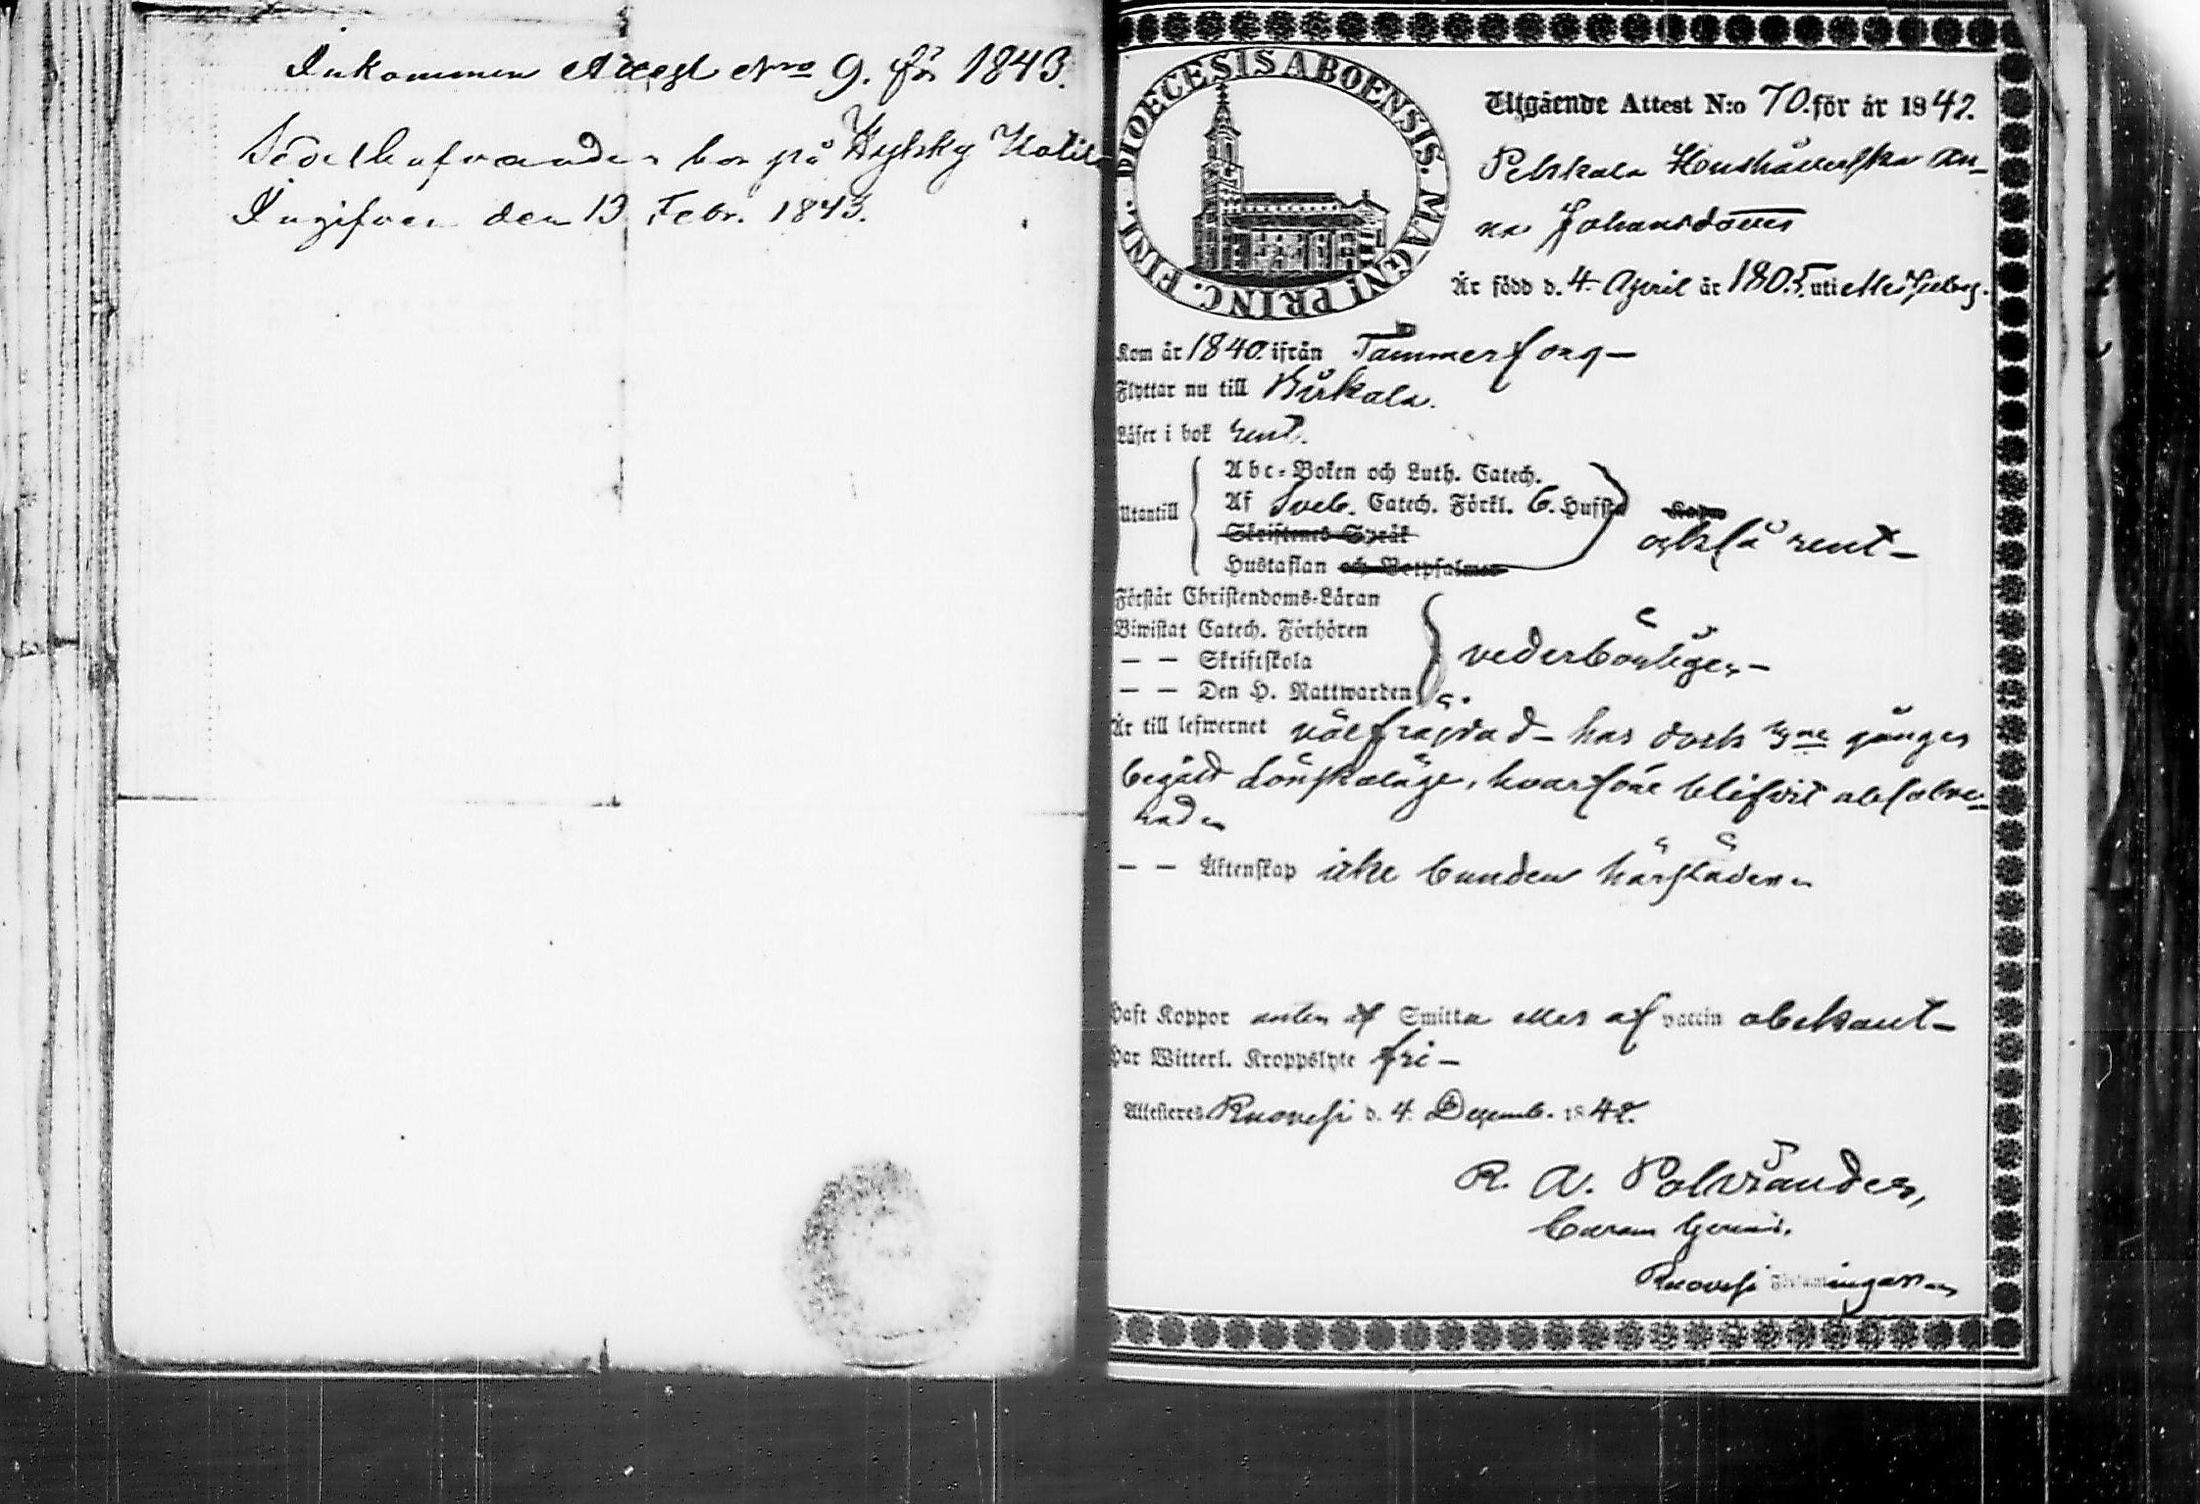 Inkommen Attest Nro 9. för 1843.
bor på Hyhky
Ingifven den 13 Febr. 1843.
DIOECESIS ABOENSIS. MAGNI PRINC. FINL.
Utgående Attest N:o 70. för år 1842.
Pelkkala Houshållerskan An-
na Johansdotter
Är född d. 4 April år 1805. uti
Kom år 1840. ifrån Tammerfors
Flyttar nu till Birkala.
Läser i bok rent.
Utantill
Abc-Boken och Luth. Catech.
Af Sveb. Catech. Förkl. 6. Hufst
Skriftenes Språk
Hustaflan och Botpsalmer
också rent
Förstår Christendoms-Läran
Biwistat Catech. Förhören
— — Skriftskola
— — Den H. Nattwarden
vederbörligen
Är till lefwernet välfräjdad har dock 3ne gånger
begått Lönskaläge, hvarföre blifvit absolve-
rad
— — Äktenskap icke bunden härstädes
Haft Koppor anten af Smitta eller af vaccin obekant
Har Witterl. Kroppslyte fri
Attesteras Ruovesi d. 4 Decemb. 1842.
R. A. Polviander,
Ruovesi Församlingar